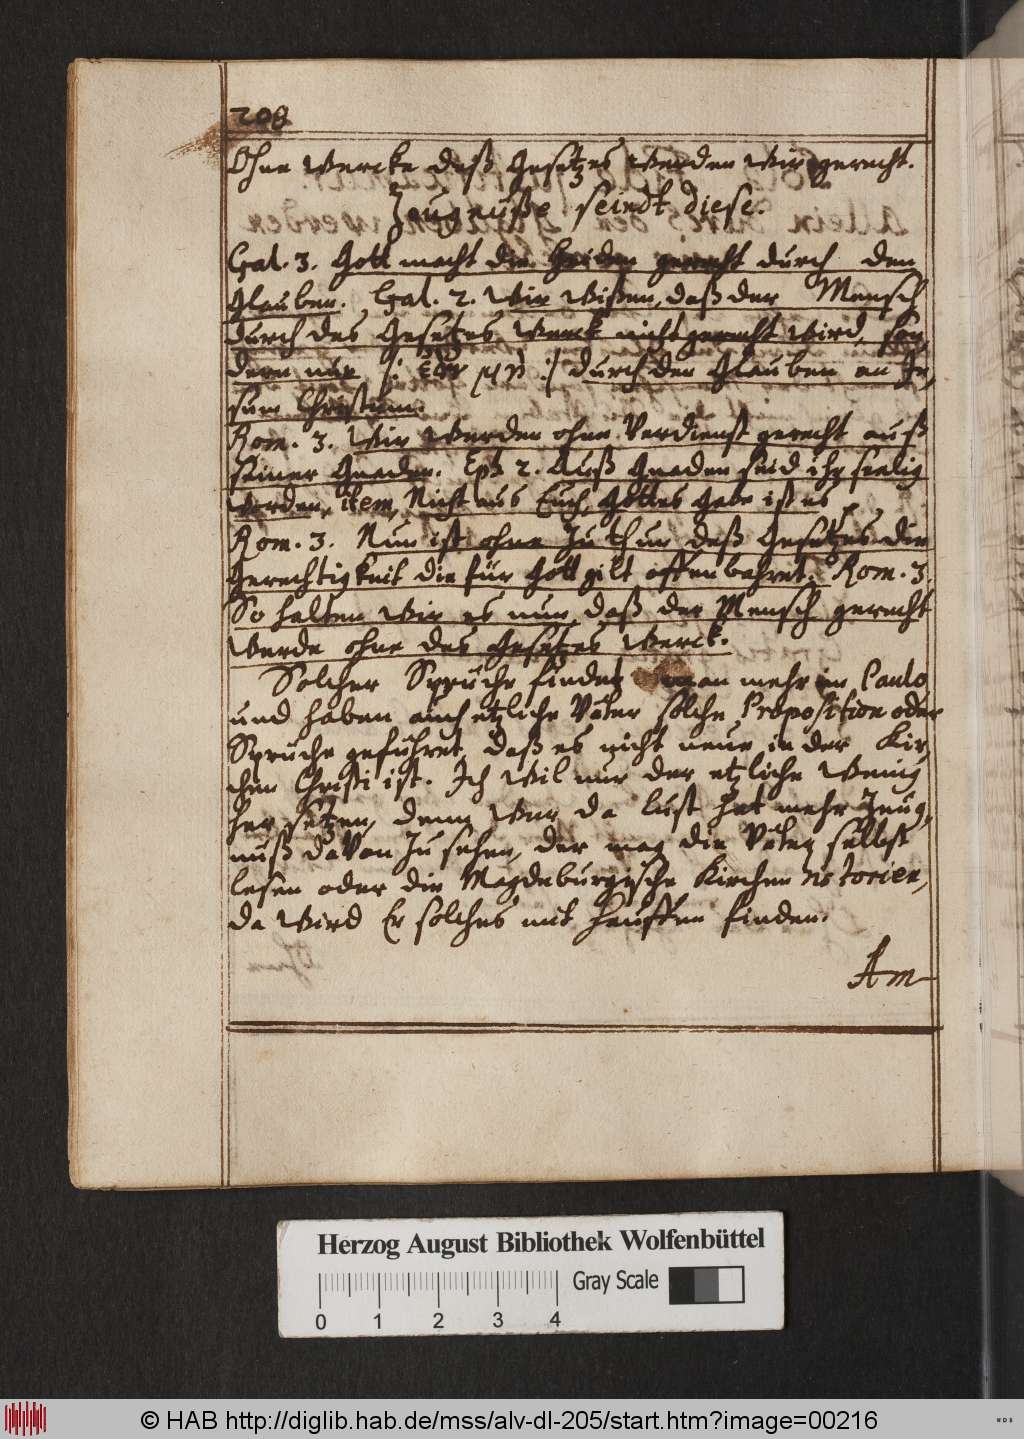 208
Ohne Wercke deß Gesetzes werden wir gerecht.
Zeugnüße seindt diese.
Gal. 3. Gott macht die Heiden gerecht durch den
Glauben. Gal. 2. Wir wißen, daß der Mensch
durch des Gesetzes Werck nicht gerecht wird, son,
dern nur /: ἐὰν μὴ :/ durch den Glauben an Je,
sum Christum.
Rom. 3. Wir werden ohne Verdienst gerecht auß
seiner Gnaden. Eph 2. Auß Gnaden seid ihr seelig
worden, item, Nicht aus Euch, Gottes Gabe ist es
Rom. 3. Nun ist ohne Zuthun deß Gesetzes die
Gerechtigkeit die für Gott gilt offenbahret. Rom. 3.
So halten wir es nun, daß der Mensch gerecht
werde ohne des Gesetzes Werck.
Solcher Sprüche findet man mehr im Paulo
und haben auch etzliche Väter solche Proposition oder
Sprüche geführet, daß es nicht neue in der Kir,
chen Christi ist. Ich wil nur der etzliche wenig
her setzen, denn wer da lust hat mehr Zeug,
nuß davon zu sehen, der mag die Väter selbst
lesen oder die Magdeburgische Kirchen historien,
da wird Er solches mit hauffen finden.
Am
Herzog August Bibliothek Wolfenbüttel
Gray Scale
0 1 2 3 4
© HAB http://diglib.hab.de/mss/alv-dl-205/start.htm?image=00216